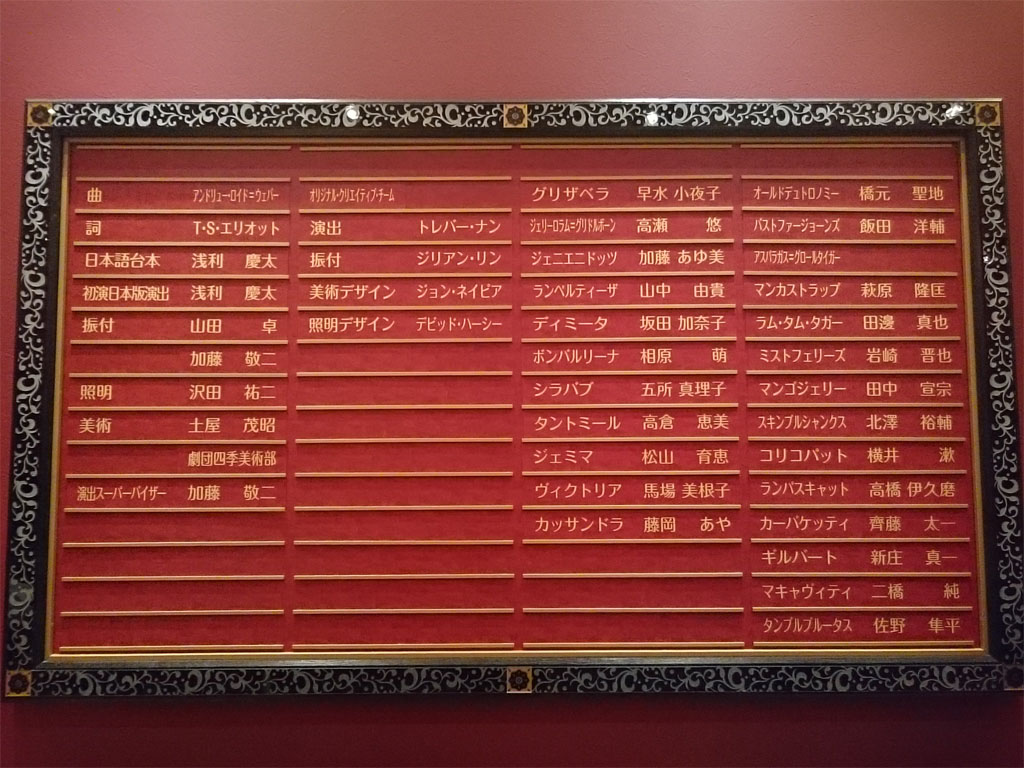 曲 アンドリュー・ロイド=ウェバー
詞 T・S・エリオット
日本語台本 浅利 慶太
初演日本版演出 浅利 慶太
振付 山田 卓
加藤 敬二
照明 沢田 祐二
美術 土屋 茂昭
劇団四季美術部
演出スーパーバイザー 加藤 敬二
オリジナル・クリエイティブ・チーム
演出 トレバー・ナン
振付 ジリアン・リン
美術デザイン ジョン・ネイピア
照明デザイン デビッド・ハーシー
グリザベラ 早水 小夜子
ジェリーロラム=グリドルボーン 高瀬 悠
ジェニエニドッツ 加藤 あゆ美
ランペルティーザ 山中 由貴
ディミータ 坂田 加奈子
ボンバルリーナ 相原 萌
シラバブ 五所 真理子
タントミール 高倉 恵美
ジェミマ 松山 育恵
ヴィクトリア 馬場 美根子
カッサンドラ 藤岡 あや
オールドデュトロノミー 橋元 聖地
バストファージョーンズ 飯田 洋輔
アスパラガス=グロールタイガー
マンカストラップ 萩原 隆匡
ラム・タム・タガー 田邊 真也
ミストフェリーズ 岩崎 晋也
マンゴジェリー 田中 宣宗
スキンブルシャンクス 北澤 裕輔
コリコパット 横井 漱
ランパスキャット 高橋 伊久磨
カーバケッティ 齊藤 太一
ギルバート 新庄 真一
マキャヴィティ 二橋 純
タンブルブルータス 佐野 隼平